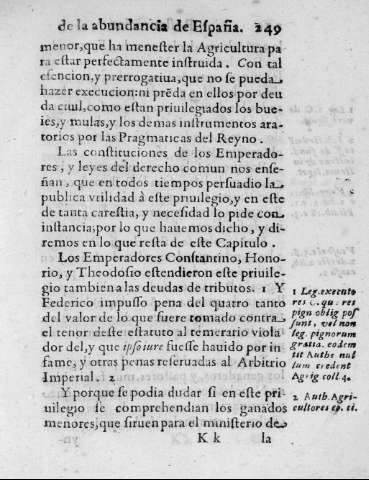 de la abundancia de España. 249
menor, que ha menester la Agricultura pa
ra estar perfectamente instruida. Con tal
esencion, y prerrogatiua, que no se pueda
hazer execucion: ni prẽda en ellos por deu
da ciuil, como estan priuilegiados los bue-
ies, y mulas, y los demas instrumentos ara-
torios por las Pragmaticas del Reyno.
Las constituciones de los Emperado-
res, y leyes del derecho comun nos ense-
ñan, que en todos tiempos persuadio la
publica vtilidad à este priuilegio, y en este
de tanta carestia, y necesidad lo pide con
instancia; por lo que hauemos dicho, y di-
remos en lo que resta de este Capitulo.
Los Emperadores Constantino, Hono-
rio, y Theodosio estendieron este priuile-
gio tambien a las deudas de tributos. 1 Y
Federico impusso pena del quatro tanto
del valor de lo que fuere tomado contra
el tenor deste estatuto al temerario viola
dor del, y que ipso iure fuesse hauido por in
fame, y otras penas reseruadas al Arbitrio
Imperial. 2
Y porque se podia dudar si en este pri-
uilegio se comprehendian los ganados
menores, que siruen para el ministerio de
K k la
1 Leg. executo
res C. qu. res
pign oblig pos
sunt, vel non
leg. pignorum
gratia. eodem
tit Authe nul
lum credent
Agrig coll 4.
2 Auth. Agri-
cultores eo. ti.